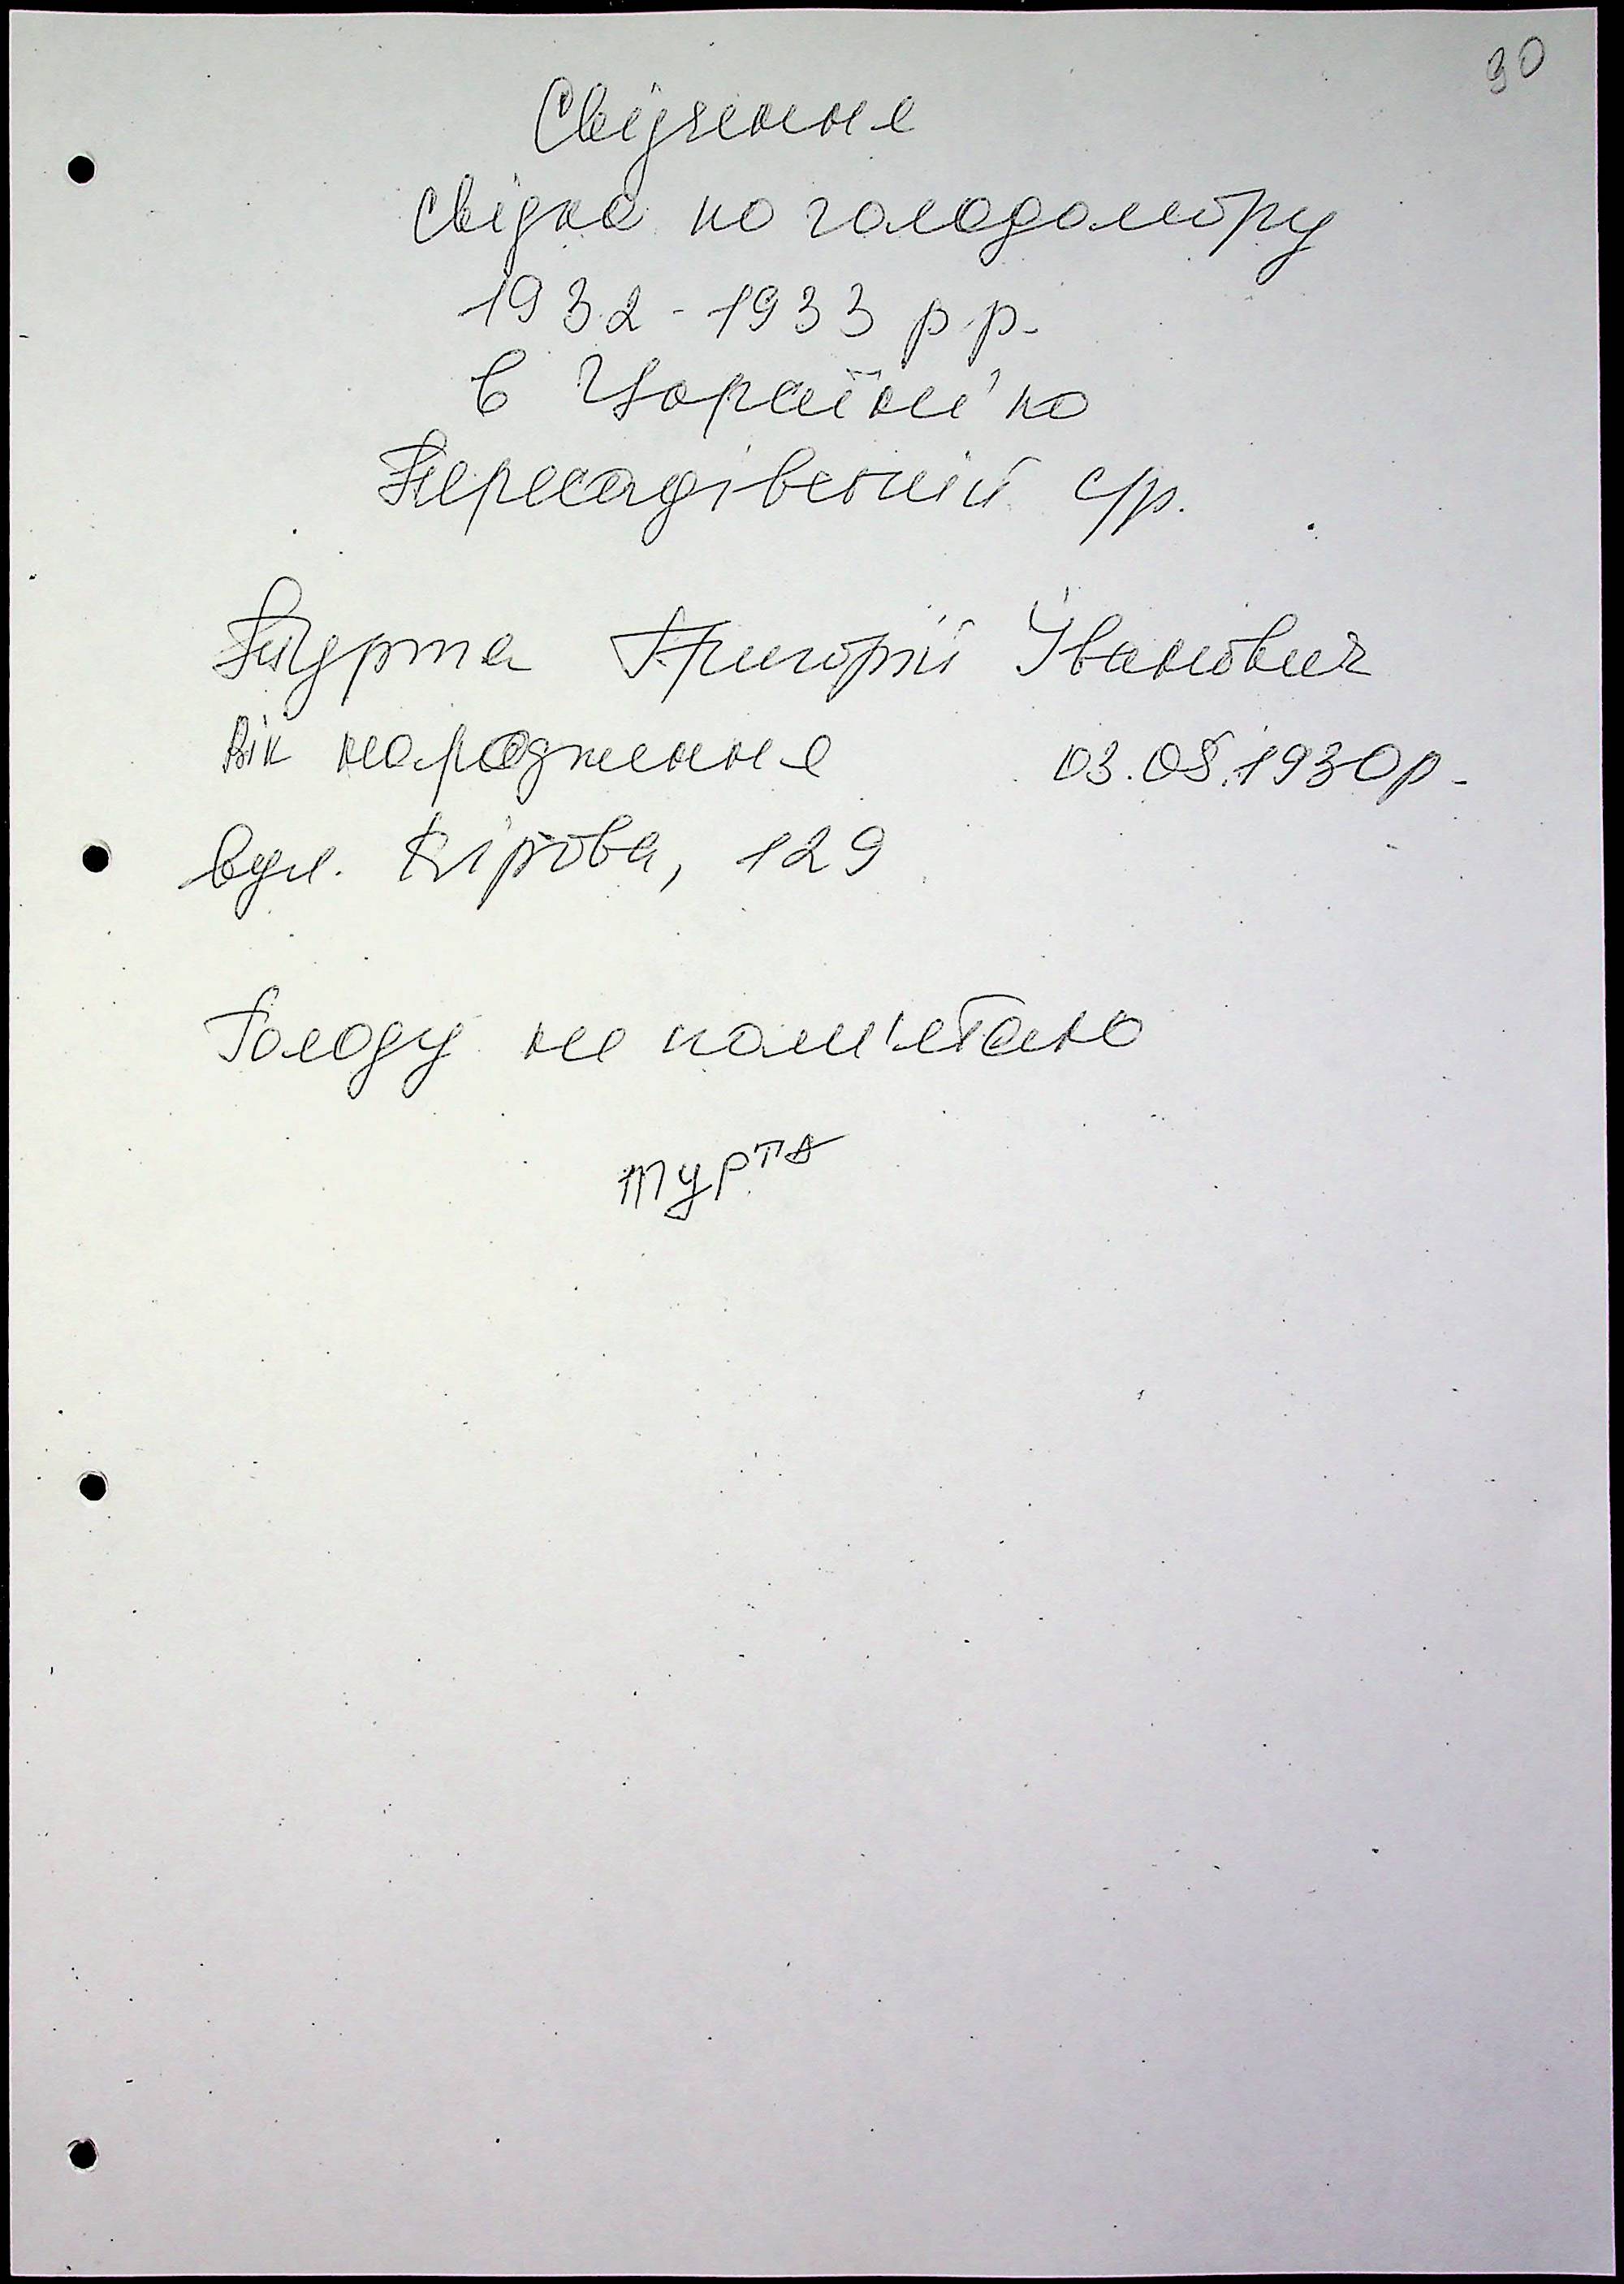 90
Свідчення
свідка по голодомору
1932-1933 р.р.
в Україні по
Пересадівській с/р.
Турта Григорій Іванович
Рік народження 03.05.1930р.
вул. Кірова, 129
Голоду не пам'ятаю
Турта